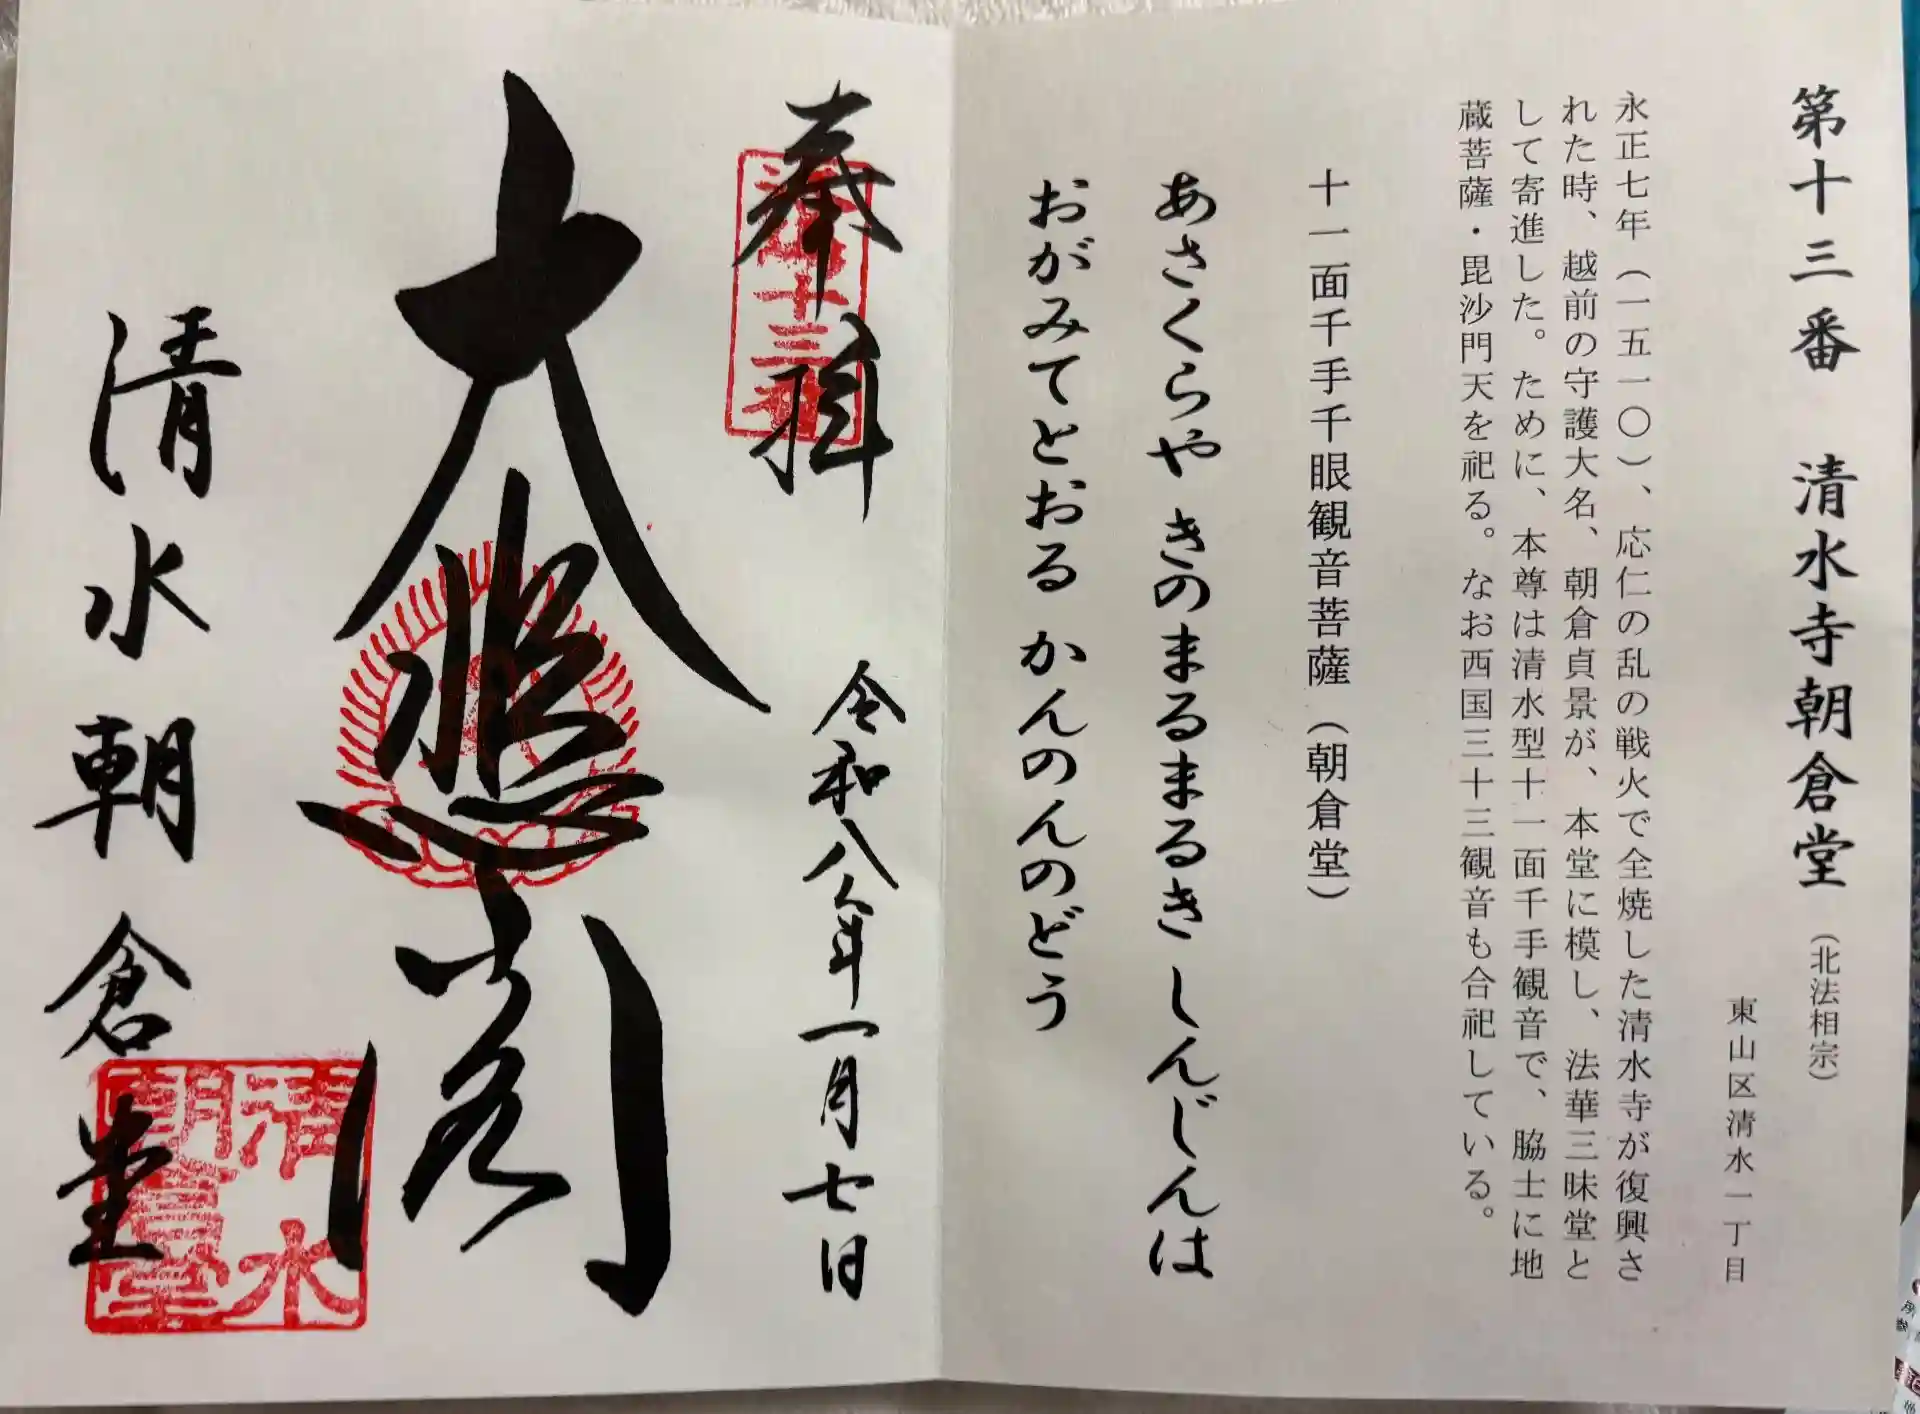 第十三番　清水寺朝倉堂（北法相宗）
東山区清水一丁目
永正七年（一五一〇）、応仁の乱の戦火で全焼した清水寺が復興さ
れた時、越前の守護大名、朝倉貞景が、本堂に模し、法華三昧堂と
して寄進した。ために、本尊は清水型十一面千手観音で、脇士に地
蔵菩薩・毘沙門天を祀る。なお西国三十三観音も合祀している。
十一面千手千眼観音菩薩（朝倉堂）
あさくらや きのまるまるき しんじんは
おがみてとおる かんのんのどう
奉拝　令和八年一月七日
洛陽十三番
大悲閣
清水朝倉堂
清水
朝倉堂